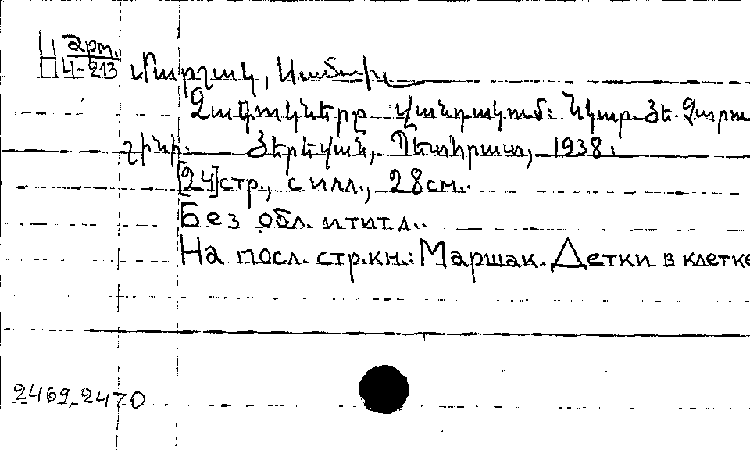 Н арm.
Ц-213
Մարշակ, Սամուիլ
Ձագուկները վանդակում: Նկար. Յե. Չարու
շինի. Յերևան, Պետհրատ, 1938:
[24]стр., с илл., 28см.
Без обл. и тит. л.
На посл. стр. кн.: Маршак. Детки в клетке
2469-2470